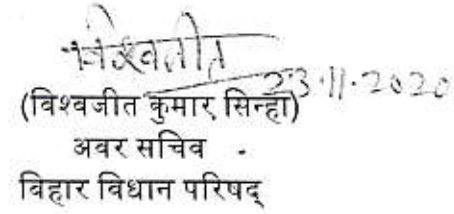 विश्वजीत
23.11.2020
(विश्वजीत कुमार सिन्हा)
अवर सचिव
बिहार विधान परिषद्